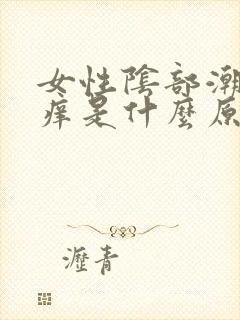 女性陰部潮
痒是什麼原
瀝青